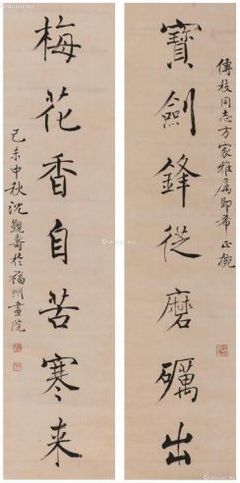 傅枝同志方家雅属即希正腕
寶劍鋒從磨礪出
梅花香自苦寒来
己未中秋沈觐壽於福州畫院